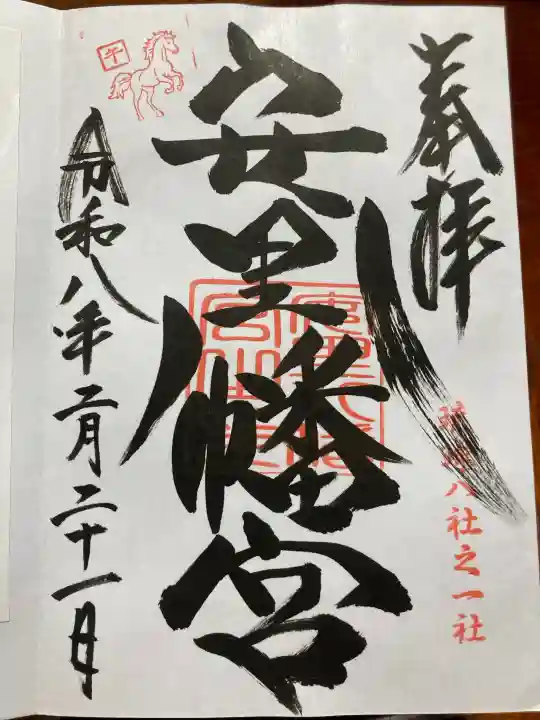 奉拝
琉球八社之一社
安里八幡宮
令和八年二月二十一日
午